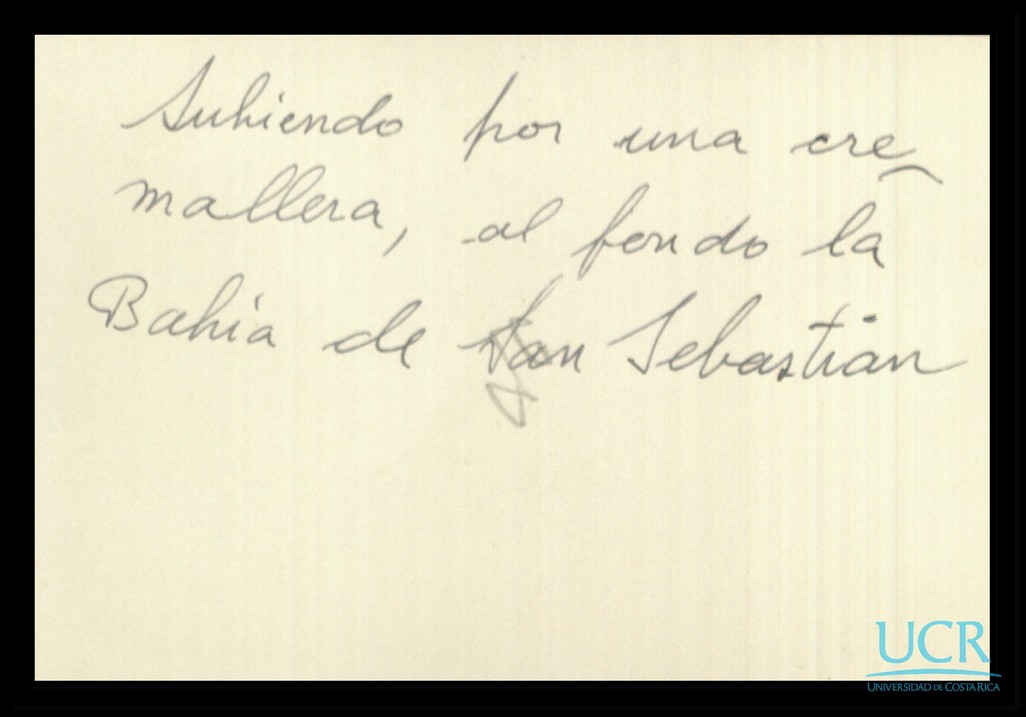 Subiendo por una cre-
mallera, al fondo la
Bahia de San Sebastian
UCR
UNIVERSIDAD DE COSTA RICA